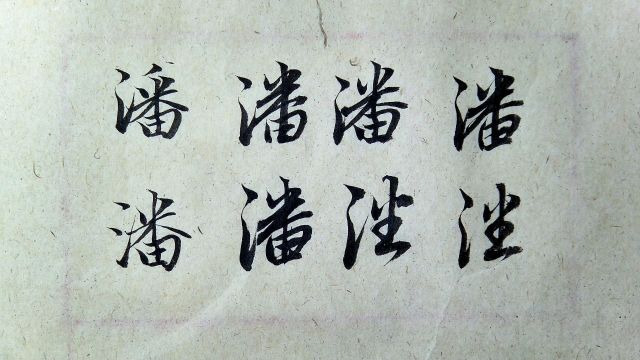 潘潘潘潘
潘潘潘潘